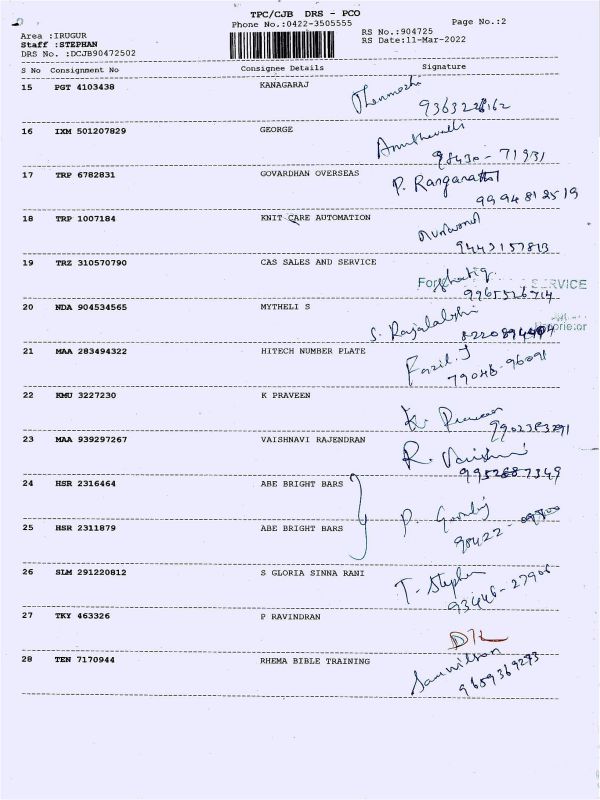 TPC/CJB DRS - PCO
Phone No.:0422-3505555
Page No.:2
Area :IRUGUR
RS No.:904725
Staff :STEPHAN
RS Date:11-Mar-2022
DRS No. :DCJB90472502
S No Consignment No Consignee Details Signature
15 PGT 4103438 KANAGARAJ
16 IXM 501207829 GEORGE
98430 - 71931
17 TRP 6782831 GOVARDHAN OVERSEAS
P.
9994812519
18 TRP 1007184 KNIT CARE AUTOMATION
9443157813
19 TRZ 310570790 CAS SALES AND SERVICE
For SERVICE
9965526714
20 NDA 904534565 MYTHELI S
S. Rajalakshi
21 MAA 283494322 HITECH NUMBER PLATE
Fazil.J
79048-96091
22 KMU 3227230 K PRAVEEN
K. Praveen
23 MAA 939297267 VAISHNAVI RAJENDRAN
R. Vaishnavi
9952687349
24 HSR 2316464 ABE BRIGHT BARS
P.
25 HSR 2311879 ABE BRIGHT BARS
98422 -
26 SLM 291220812 S GLORIA SINNA RANI
T. Stephen
93446-27906
27 TKY 463326 P RAVINDRAN
28 TEN 7170944 RHEMA BIBLE TRAINING
Samwilson
9659369273